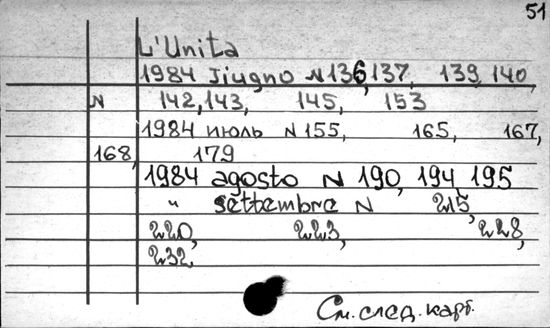 51
L'Unita
1984 Jiugno N136, 137, 139, 140,
N 142, 143, 145, 153
1984 июль N 155, 165, 167,
168, 179
1984 agosto N 190, 194, 195
" settembre N 215,
220, 223, 228,
232,
См. след. карт.